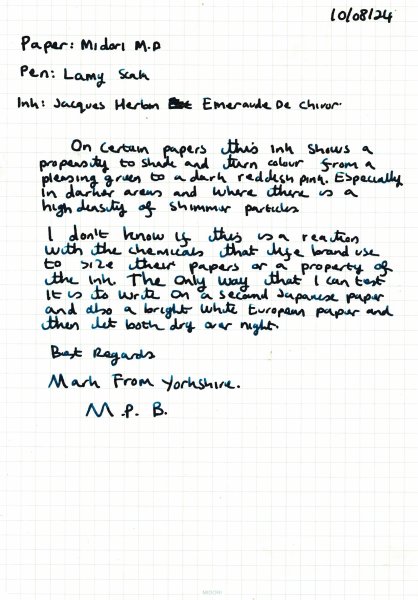 10/08/24
Paper: Midori M.D
Pen: Lamy Scah
Ink: Jacques Herbin Emeraude De Chivor.
On Certain papers this ink shows a
propensity to shade and turn colour from a
pleasing green to a dark reddish pink. Especially
in darker areas and where there is a
high density of shimmer particles
I don't know if this is a reaction
with the chemicals that this brand use
to size their papers or a property of
the ink. The only way that I can test
it is to write on a second Japanese paper
and also a bright white European paper and
then let both dry over night.
Best Regards
Mark From Yorkshire.
M.P. B.
MIDORI